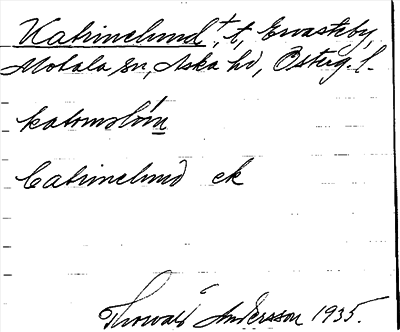 Katrinelund, t, Evasteby,
Motala sn, Aska hd, Österg. l.
katrnslún
Catrinelund ek
Thorvald Andersson 1935.